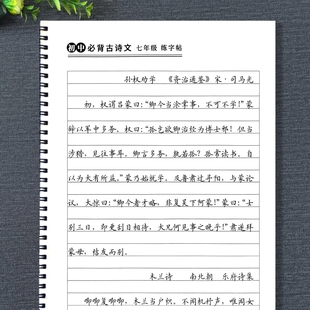 初中必背古诗文 七年级 练字帖
孙权劝学 《资治通鉴》宋·司马光
初，权谓吕蒙曰：“卿今当涂掌事，不可不学！”蒙
辞以军中多务。权曰：“孤岂欲卿治经为博士邪！但当
涉猎，见往事耳。卿言多务，孰若孤？孤常读书，自
以为大有所益。”蒙乃始就学。及鲁肃过寻阳，与蒙论
议，大惊曰：“卿今者才略，非复吴下阿蒙！”蒙曰：“士
别三日，即更刮目相待，大兄何见事之晚乎！”肃遂拜
蒙母，结友而别。
木兰诗 南北朝 乐府诗集
唧唧复唧唧，木兰当户织。不闻机杼声，唯闻女